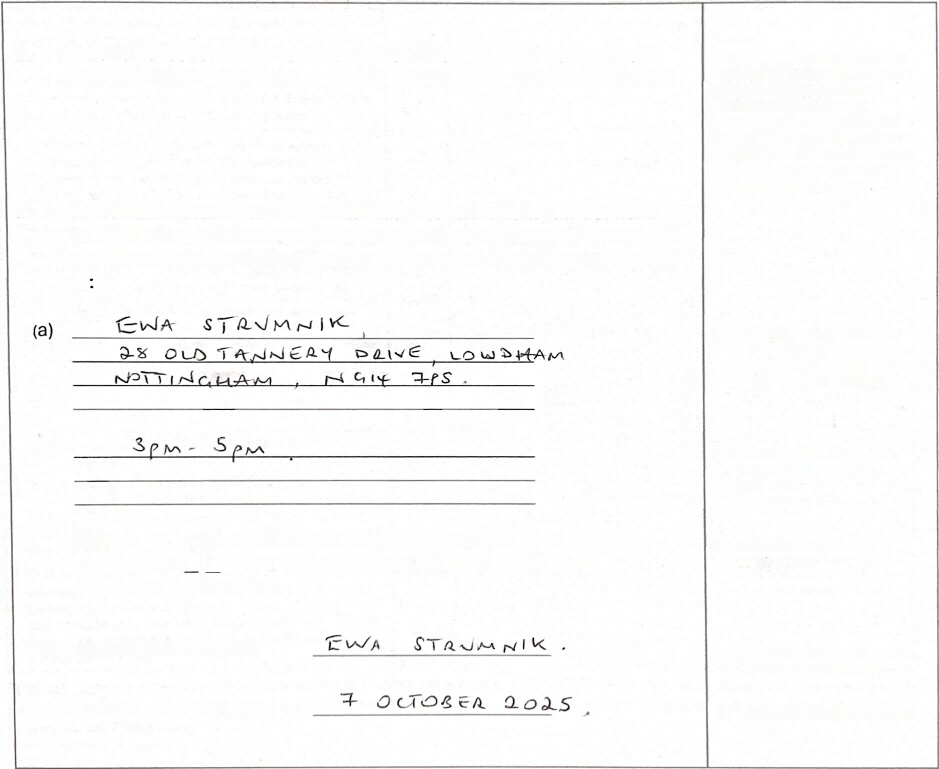 :
(a) EWA STRUMNIK,
28 OLD TANNERY DRIVE, LOWDHAM
NOTTINGHAM, NG14 7PS.
3PM - 5PM.
EWA STRUMNIK.
7 OCTOBER 2025.